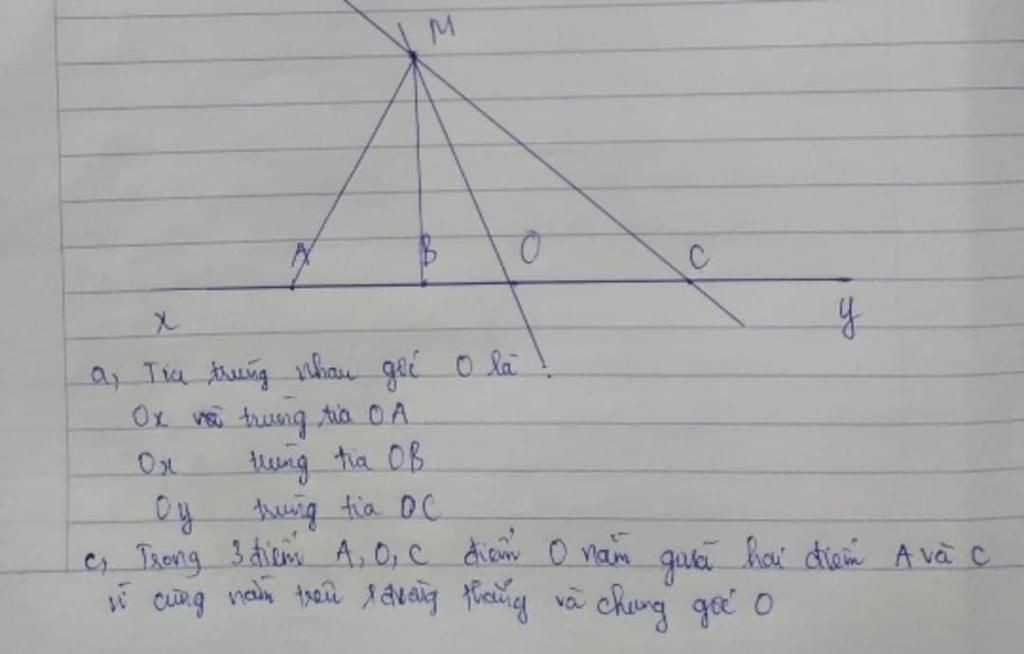 M
A B O C
x y
a, Tia trùng nhau gốc O là :
Ox trùng tia OA
Ox trùng tia OB
Oy trùng tia OC
c, Trong 3 điểm A, O, C điểm O nằm giữa hai điểm A và C
vì cùng nằm trên 1 đường thẳng và chung gốc O